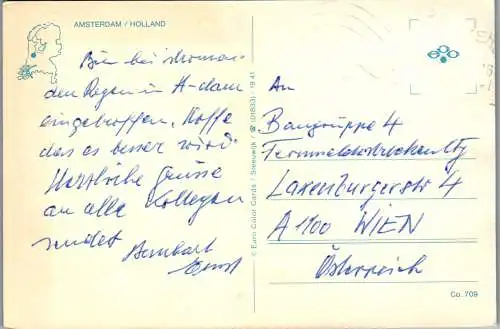 AMSTERDAM / HOLLAND
Bin bei strömen-
den Regen in A-dam
eingetroffen. Hoffe
das es besser wird.
Herzliche Grüsse
an alle Kollegen
sendet
Ernst
© Euro Color Cards / Steenwijk / ☎ (01633) - 19 41
An
Baugruppe 4
Laxenburgerstr 4
A 1100 WIEN
Österreich
Co. 709